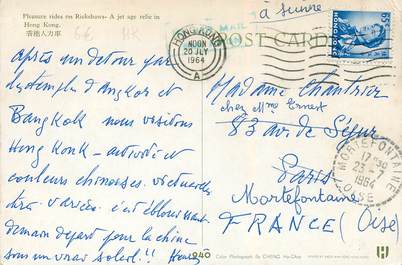 Pleasure rides on Rickshaws- A jet age relic in
Hong Kong.
香港人力車
66 HK
à suivre
POST CARD
HONG KONG
NOON
20 JLY
1964
A
Après un détour par
les temples d'Angkor et
Bangkok nous visitons
Hong Konk - activité et
couleurs chinoises.
très variés. c'est éblouissant
demain départ pour la chine
sous un vrai soleil!! Henry
Madame Chantrier
chez Mme Ernest
83 av. de Ségur
Paris
Mortefontaine
FRANCE (Oise)
MORTEFONTAINE
17-30
23-7
1964
OISE
1940
Color Photograph By CHENG Ho-Chee
H